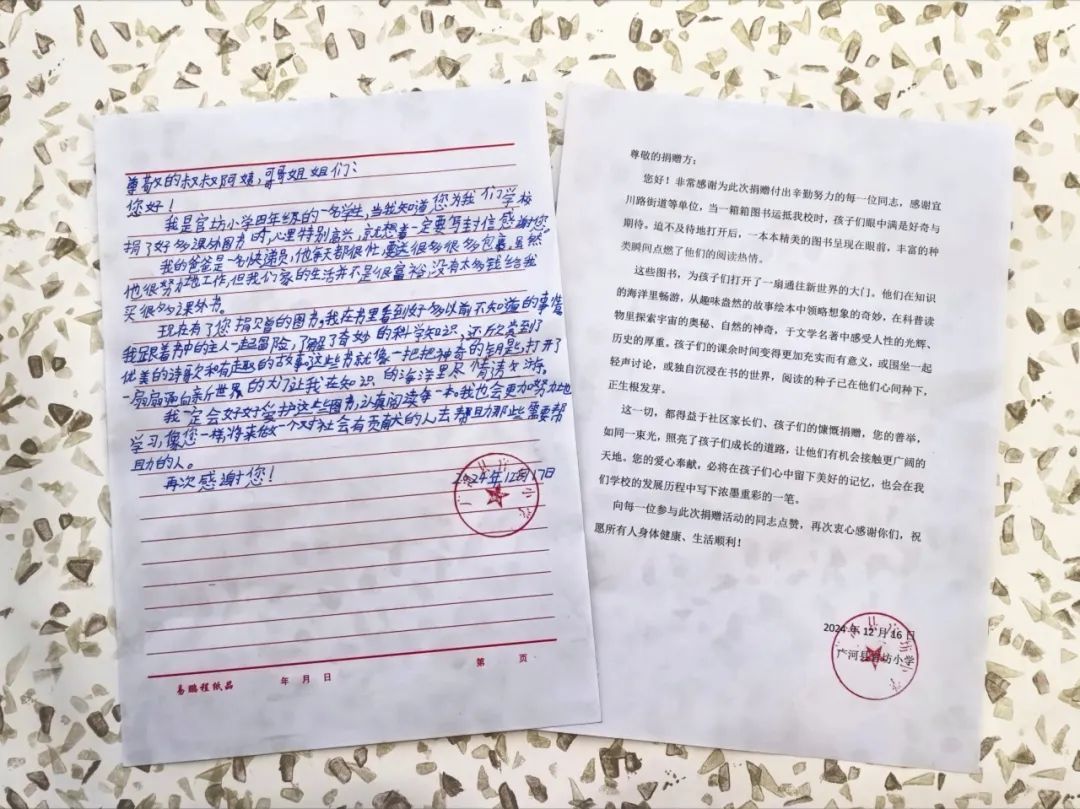 尊敬的叔叔阿姨,哥哥姐姐们:
您好!
我是官坊小学四年级的一名学生,当我知道您为我们学校
捐了好多课外图书时,心里特别高兴,就想着一定要写封信感谢您。
我的爸爸是一名快递员,他每天都很忙,要送很多很多包裹,虽然
他很努力地工作,但我们家的生活并不是很富裕,没有太多钱给我
买很多课外书。
现在有了您捐赠的图书,我在书里看到好多以前不知道的事情,
我跟着书中的主人一起冒险,了解了奇妙的科学知识,还欣赏到了
优美的诗歌和有趣的故事这些书就像一把把神奇的钥匙,打开了
一扇扇通向新世界的大门让我在知识的海洋里尽情遨游。
我一定会好好爱护这些图书,认真阅读每一本。我也会更加努力地
学习,像您一样,将来做一个对社会有贡献的人去帮助那些需要帮
助的人。
再次感谢您!
2024年12月17日
第 页
易鹏程纸品 年 月 日
尊敬的捐赠方:
您好!非常感谢为此次捐赠付出辛勤努力的每一位同志,感谢宜
川路街道等单位,当一箱箱图书运抵我校时,孩子们眼中满是好奇与
期待。迫不及待地打开后,一本本精美的图书呈现在眼前,丰富的种
类瞬间点燃了他们的阅读热情。
这些图书,为孩子们打开了一扇通往新世界的大门。他们在知识
的海洋里畅游,从趣味盎然的故事绘本中领略想象的奇妙,在科普读
物里探索宇宙的奥秘、自然的神奇,于文学名著中感受人性的光辉、
历史的厚重。孩子们的课余时间变得更加充实而有意义,或围坐一起
轻声讨论,或独自沉浸在书的世界,阅读的种子已在他们心间种下,
正生根发芽。
这一切,都得益于社区家长们、孩子们的慷慨捐赠,您的善举,
如同一束光,照亮了孩子们成长的道路,让他们有机会接触更广阔的
天地。您的爱心奉献,必将在孩子们心中留下美好的记忆,也会在我
们学校的发展历程中写下浓墨重彩的一笔。
向每一位参与此次捐赠活动的同志点赞,再次衷心感谢你们,祝
愿所有人身体健康、生活顺利!
2024年12月16日
广河县官坊小学